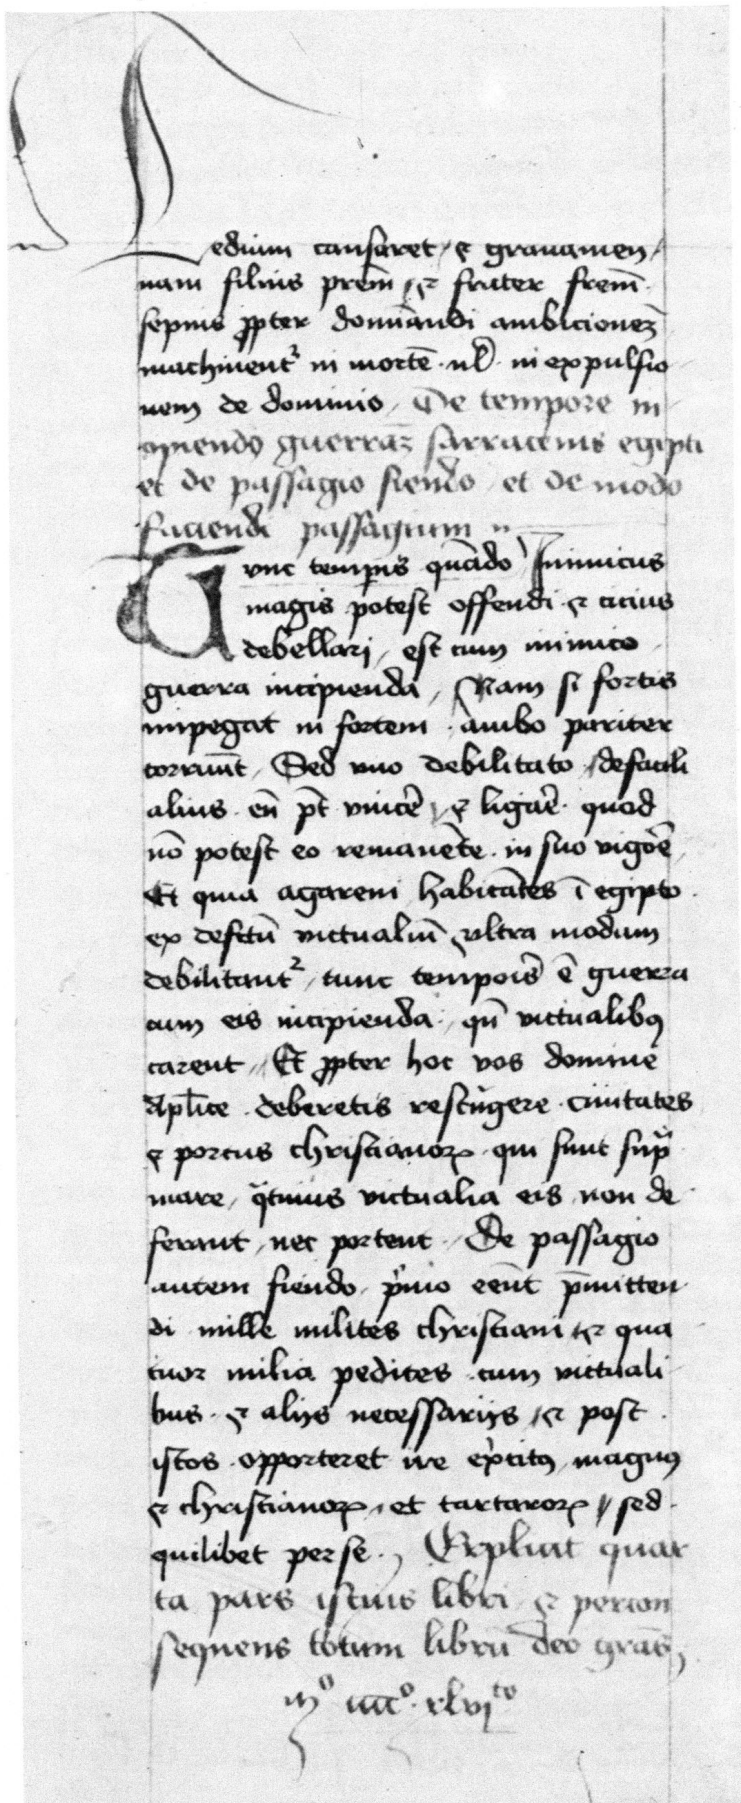 Tedium causaret / et grauamen /
nam filius prem̄ / et frater frem̄ .
sepius ꝓpter domin̄andi ambicionem
machinent᷑ in mortē . ul̄ . in expulsio
nem de dominio / De tempore in
guerram sarracenis egipti
et de passagio fiendo / et de modo
faciendi passagium
Tunc temporis quādo Inimicus
magis potest offendi . et cicius
debellari / est cum inimico .
guerra incipienda / Nam si fortis
impegat in fortem . ambo pariter
corruūt / Sed vno debilitato / defacili
alius . eū pt̄ vincē᷑ / et ligar̄e . quod
nō potest eo remanēte . in suo vigor̄e /
Et quia agareni habitātes ī egipto .
ex defctū victualiū vltra modum
debilitant᷑ / tunc tempor̄is ē guerra
cum eis incipienda . / qn̄ victualibꝰ
carent / Et ꝓpter hoc vos domine
Apl̄ice . deberetis restringere . ciuitates
et portus christianoꝝ . qui sunt supra
mare / q̄tinus victualia eis non de
ferant / nec portent / De passagio
autem fiendo / primo eēnt p̄mitten
di mille milites christiani et qua
tuor milia pedites . cum victuali
bus . et alijs necessarijs / et post .
istos . opporteret ire exercitꝰ magnꝰ
et christianoꝝ / et tartaroꝝ / sed .
quilibet per se . / Explicit quar
ta pars istius libri . et percon
sequens totum librū deo gras̄
mᵒ iiiicᵒ . xlviᵗᵒ